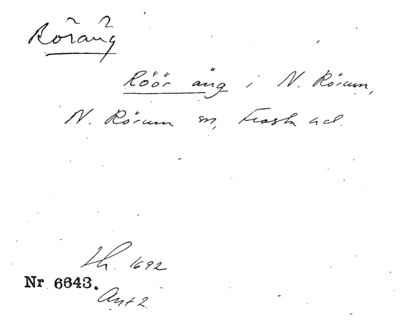 Röräng
Röör äng i N. Rörum,
N. Rörum sn, Frosta hd.
Lh. 1692
Nr 6643.
Ant 2